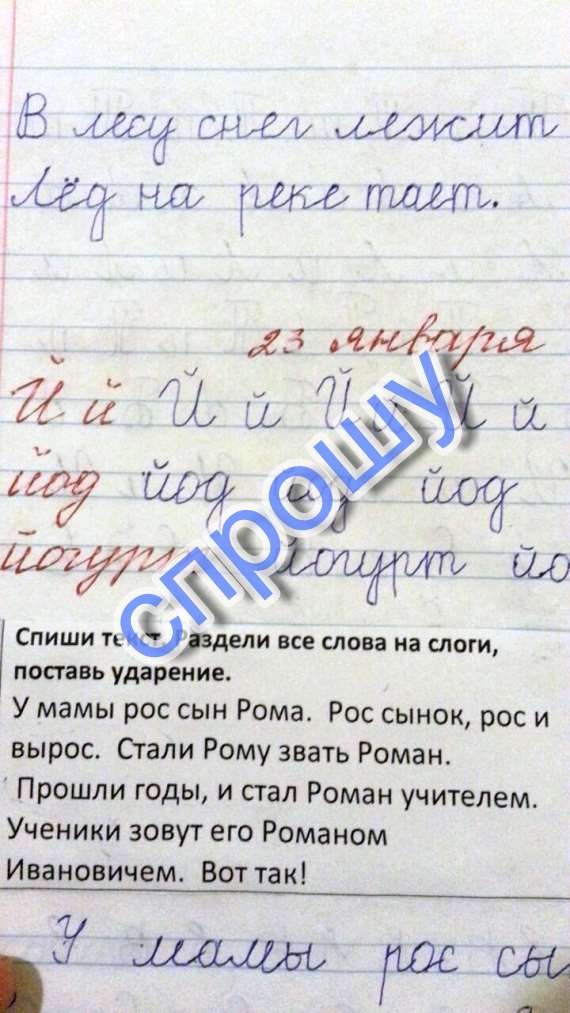 В лесу снег лежит
Лёд на реке тает.
23 января
Й й Й й Й й Й й
йод йод йод йод
йогурт йогурт йо
спрошу
Спиши текст. Раздели все слова на слоги,
поставь ударение.
У мамы рос сын Рома. Рос сынок, рос и
вырос. Стали Рому звать Роман.
Прошли годы, и стал Роман учителем.
Ученики зовут его Романом
Ивановичем. Вот так!
У мамы рос сы